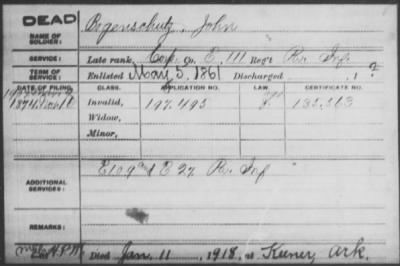 DEAD
NAME OF SOLDIER: Bogenschutz, John
SERVICE: Late rank, Co. E, 111 Reg't Pa. Inf
TERM OF SERVICE: Enlisted May 5, 1861 Discharged , 1 ?
DATE OF FILING. CLASS. APPLICATION NO. LAW. CERTIFICATE NO.
1874 Invalid, 197.495
Widow,
Minor,
ADDITIONAL SERVICES: E 27 Pa. Inf
REMARKS:
Died Jan. 11, 1918, at Keener, Ark.